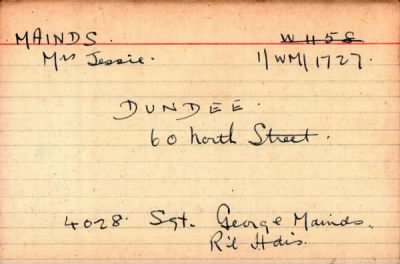 MAINDS. W 1158
Mrs Jessie. 1/WM/1727.
DUNDEE.
60 North Street.
4028. Sgt. George Mainds.
R'l Hdrs.